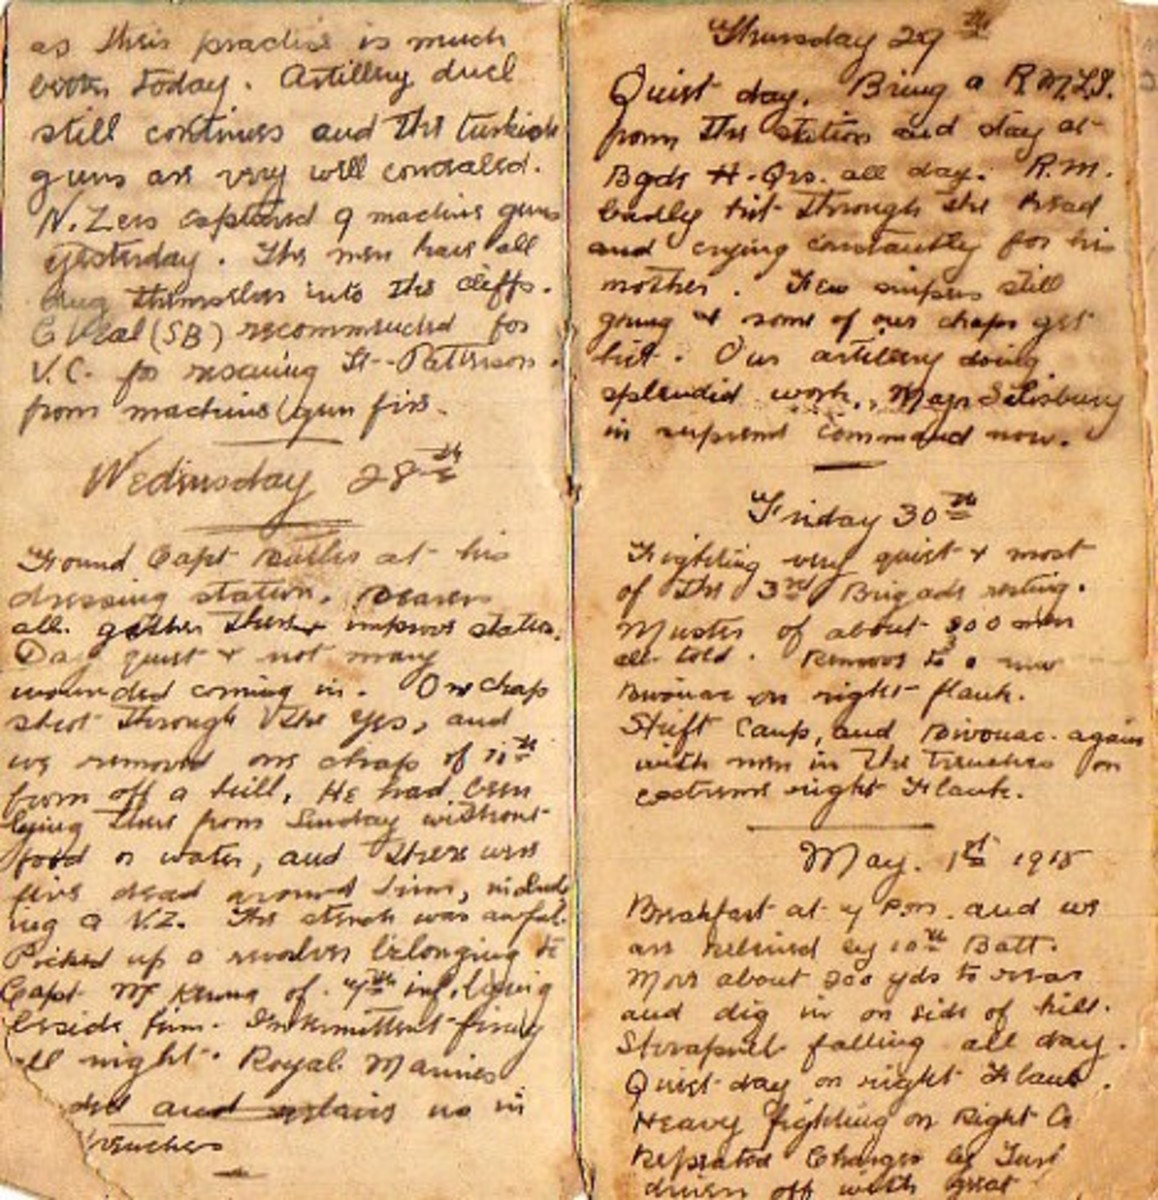 as their practise is much
better today. Artillery duel
still continues and the turkish
guns are very well concealed.
N. Zers captured 9 machine guns
yesterday. The men have all
dug themselves into the cliffs.
(SB) recommended for
V.C. for rescuing Lt. Patterson.
from machine gun fire.
Wednesday 28th
Found Capt Butler at his
dressing station. Bearers
all gather there & improve station.
Day quiet & not many
wounded coming in. One chap
shot through the eyes, and
we removed one chap of 11th
from off a hill. He had been
lying there from Sunday without
food or water, and there were
five dead around him, includ
ing a N.Z. The stench was awful.
Picked up a revolver belonging to
Capt of 7th inf. lying
beside him. Intermittent firing
all night. Royal Marines
and relieve us in
trenches
Thursday 29th
Quiet day. Bring a R.M.L.I.
from the station and stay at
Bgde H. Qrs. all day. R.M.
badly hit through the head
and crying constantly for his
mother. Few snipers still
going & some of our chaps get
hit. Our artillery doing
splendid work, Major Salisbury
in supreme command now.
Friday 30th
Fighting very quiet & most
of the 3rd Brigade resting.
Muster of about men
all told. Remove to a new
Bivouac on right flank.
Shift Camp, and Bivouac again
with men in the trenches on
extreme right Flank.
May. 1st 1915
Breakfast at 4 P.m. and we
are relieved by 10th Batt.
Move about 200 yds to rear
and dig in on side of hill.
Shrapnel falling all day.
Quiet day on right Flank.
Heavy fighting on Right Co
Repeated Charges by Turk
driven off with great